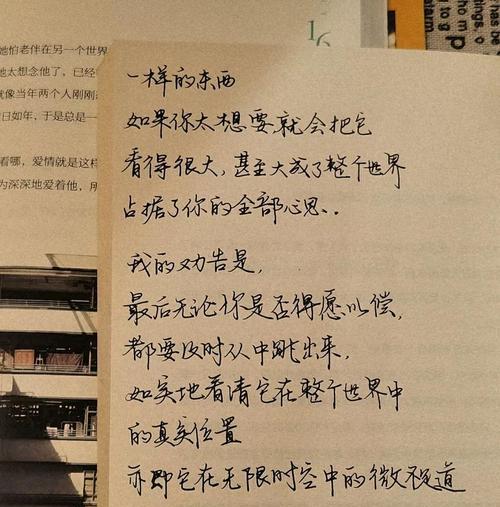 她怕老伴在另一个世界
太想念他了，已经
就像当年两个人刚刚
日如年，于是总是一
看哪，爱情就是这样
为深深地爱着他，所
16
has be
ings, o
y to g
alarm
一样的东西
如果你太想要就会把它
看得很大，甚至大成了整个世界
占据了你的全部心思..
我的劝告是，
最后无论你是否得愿以偿，
都要及时从中跳出来，
如实地看清它在整个世界中
的真实位置
亦即它在无限时空中的微不足道